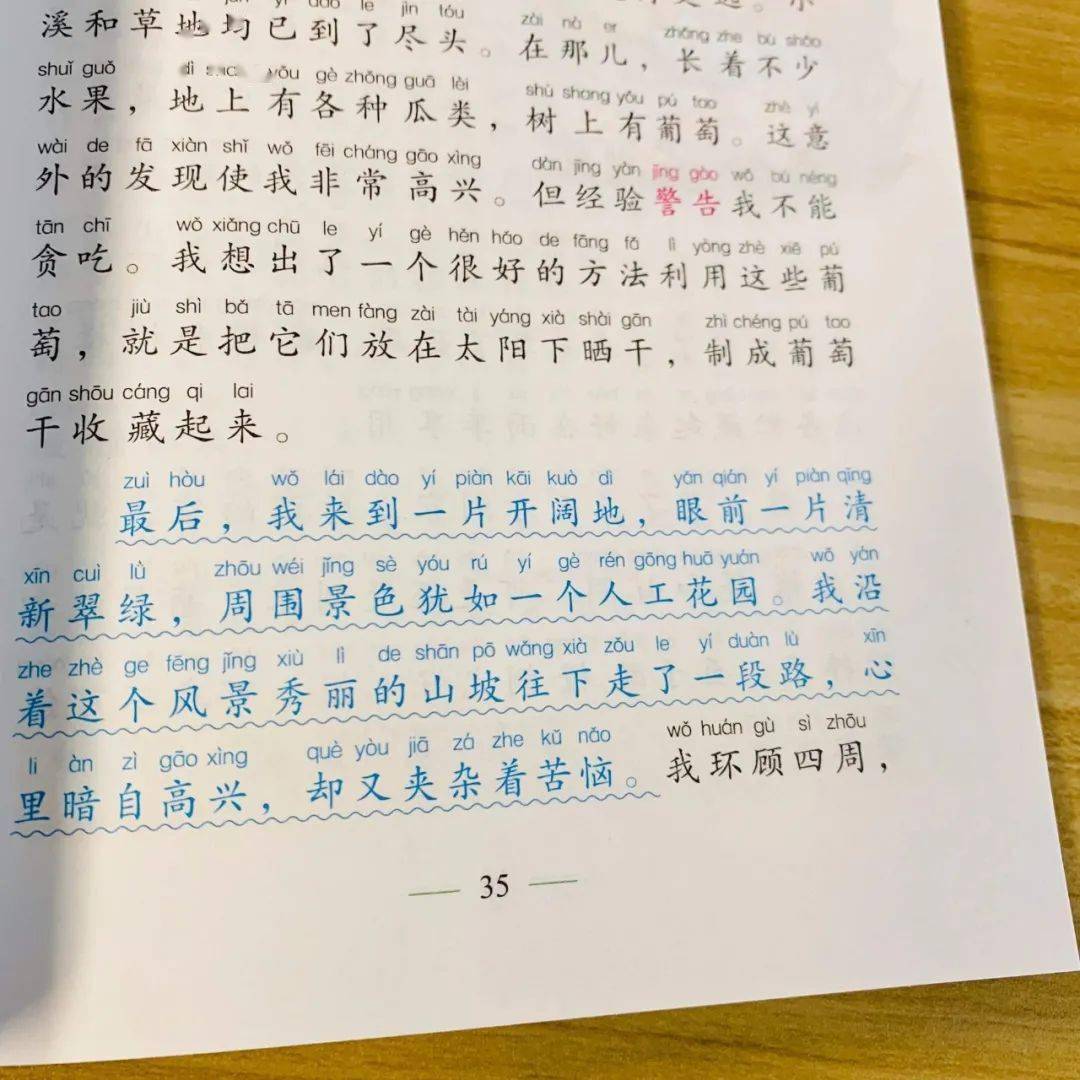 dào le jìn tóu zài nà er zhǎng zhe bù shǎo
溪和草地均已到了尽头。在那儿，长着不少
shuǐ guǒ yǒu gè zhǒng guā lèi shù shang yǒu pú tao zhè yì
水果，地上有各种瓜类，树上有葡萄。这意
wài de fā xiàn shǐ wǒ fēi cháng gāo xìng dàn jīng yàn jǐng gào wǒ bù néng
外的发现使我非常高兴。但经验警告我不能
tān chī wǒ xiǎng chū le yí gè hěn hǎo de fāng fǎ lì yòng zhè xiē pú
贪吃。我想出了一个很好的方法利用这些葡
tao jiù shì bǎ tā men fàng zài tài yáng xià shài gān zhì chéng pú tao
萄，就是把它们放在太阳下晒干，制成葡萄
gān shōu cáng qi lai
干收藏起来。
zuì hòu wǒ lái dào yí piàn kāi kuò dì yǎn qián yí piàn qīng
最后，我来到一片开阔地，眼前一片清
xīn cuì lǜ zhōu wéi jǐng sè yóu rú yí gè rén gōng huā yuán wǒ yán
新翠绿，周围景色犹如一个人工花园。我沿
zhe zhè ge fēng jǐng xiù lì de shān pō wǎng xià zǒu le yí duàn lù xīn
着这个风景秀丽的山坡往下走了一段路，心
li àn zì gāo xìng què yòu jiā zá zhe kǔ nǎo wǒ huán gù sì zhōu
里暗自高兴，却又夹杂着苦恼。我环顾四周，
35